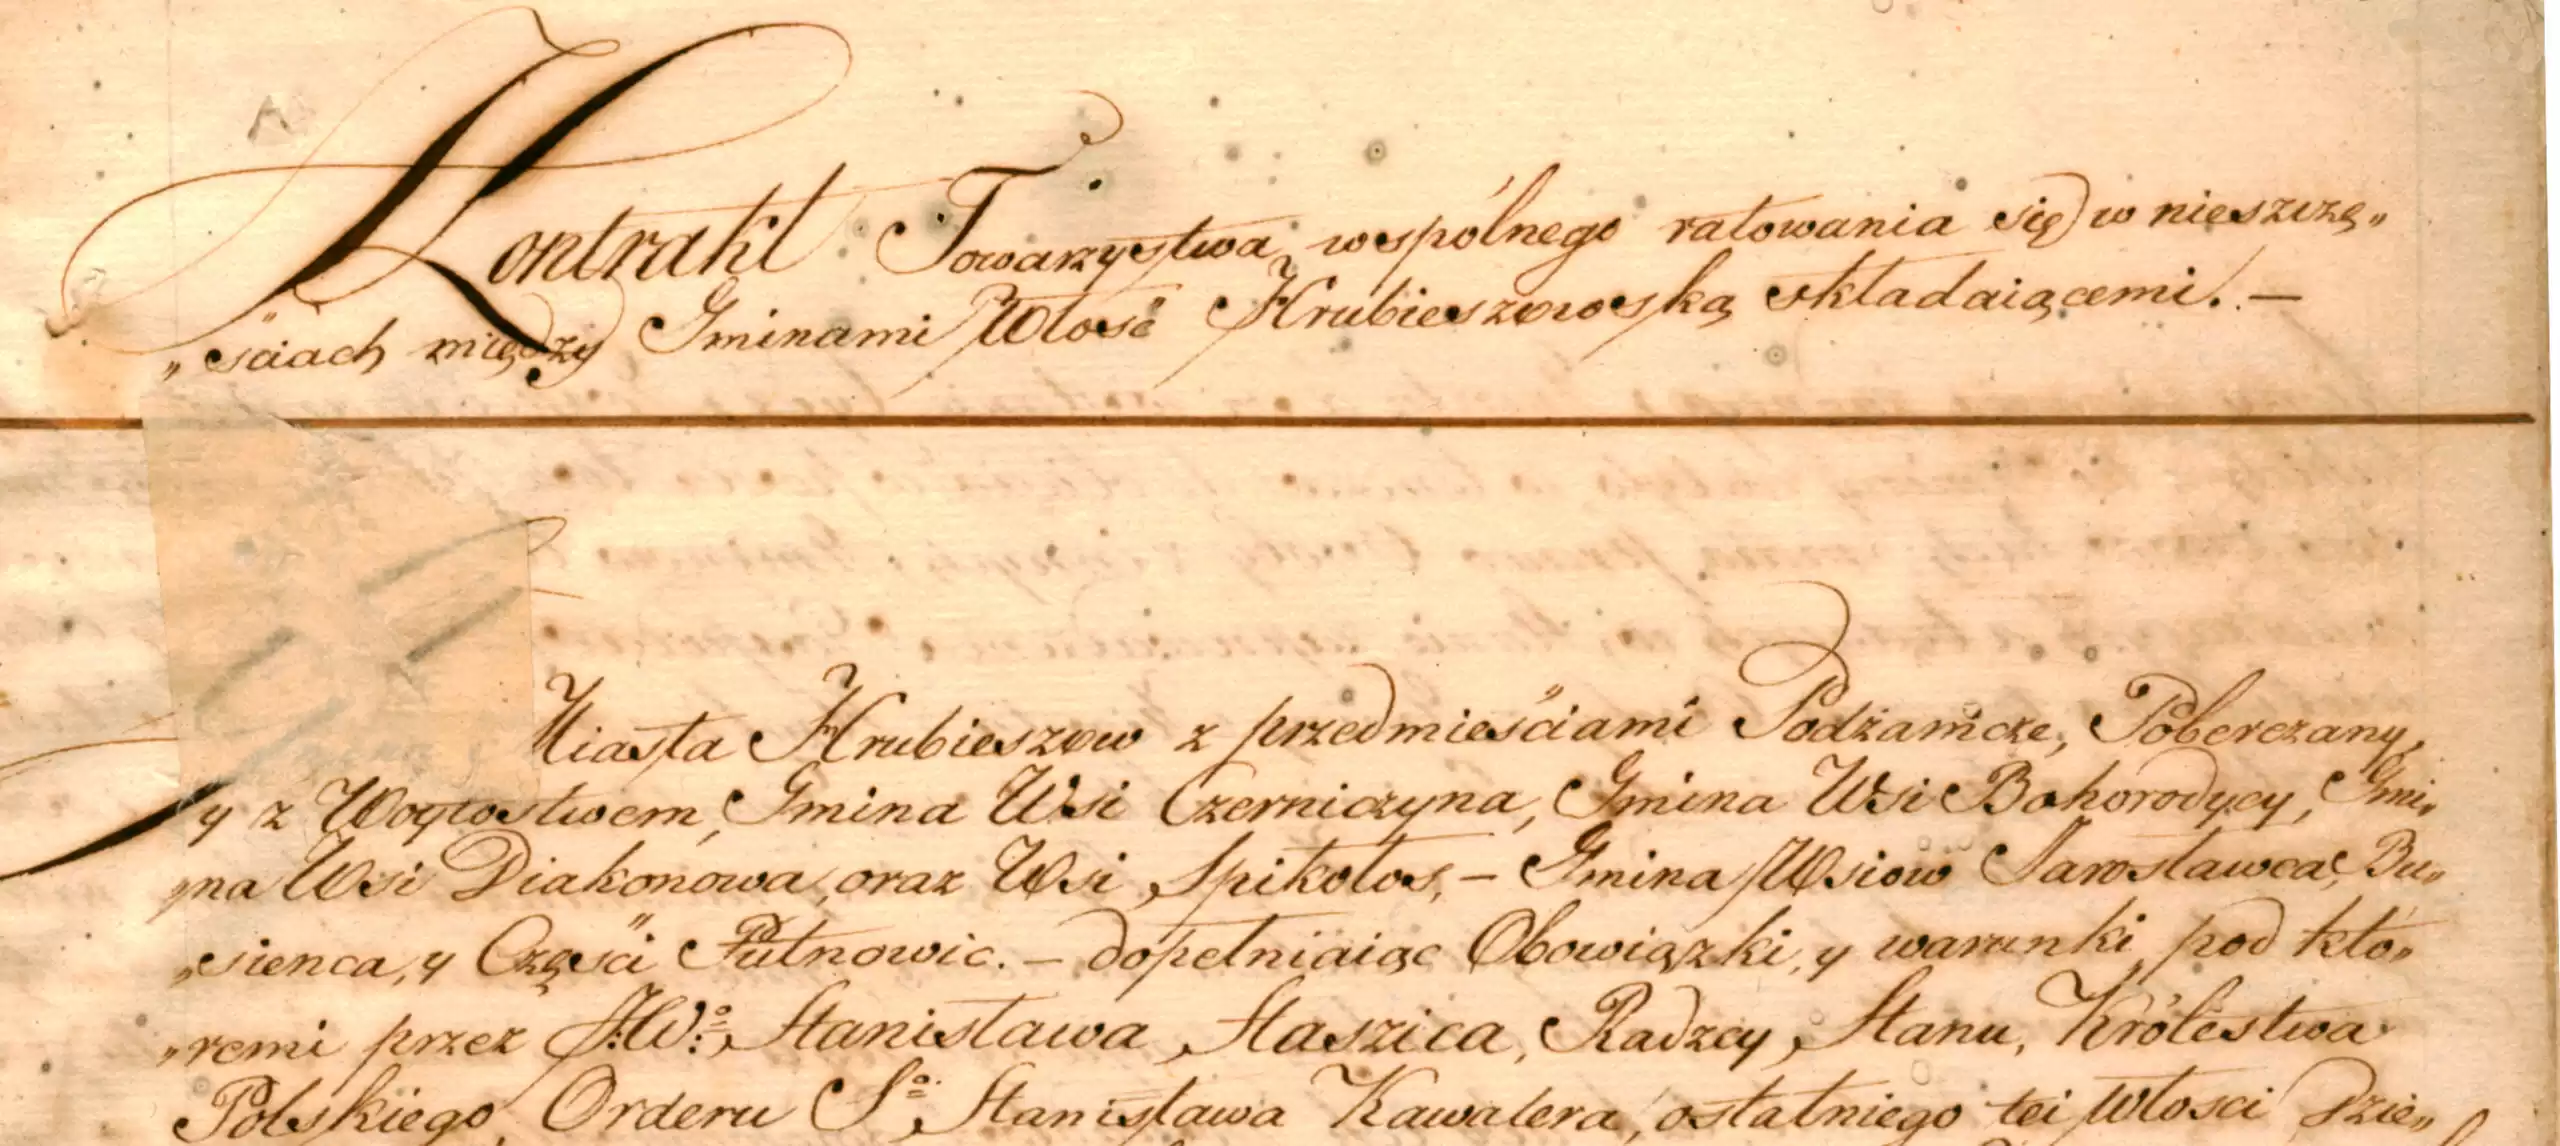 Kontrakt Towarzystwa wspólnego ratowania się w nieszczę„
„ściach między Gminami Włość Hrubieszowską składaiącemi. —
Miasta Hrubieszow z przedmieściami Podzamcze, Pobereżany,
y z Woytostwem, Gmina Wsi Czerniczyna, Gmina Wsi Bohorodycy, Gmi„
„na Wsi Diakonowa, oraz Wsi Spikołos, — Gmina Wsiow Jarosławca, Bu„
„sienca, y Części Putnowic. — dopełniaiąc Obowiązki, y warunki pod któ„
„remi przez J.W.º Stanisława Staszica, Radzcy Stanu, Królestwa
Polskiego, Orderu S.º Stanisława Kawalera, ostatniego tei Włosci Dzie„